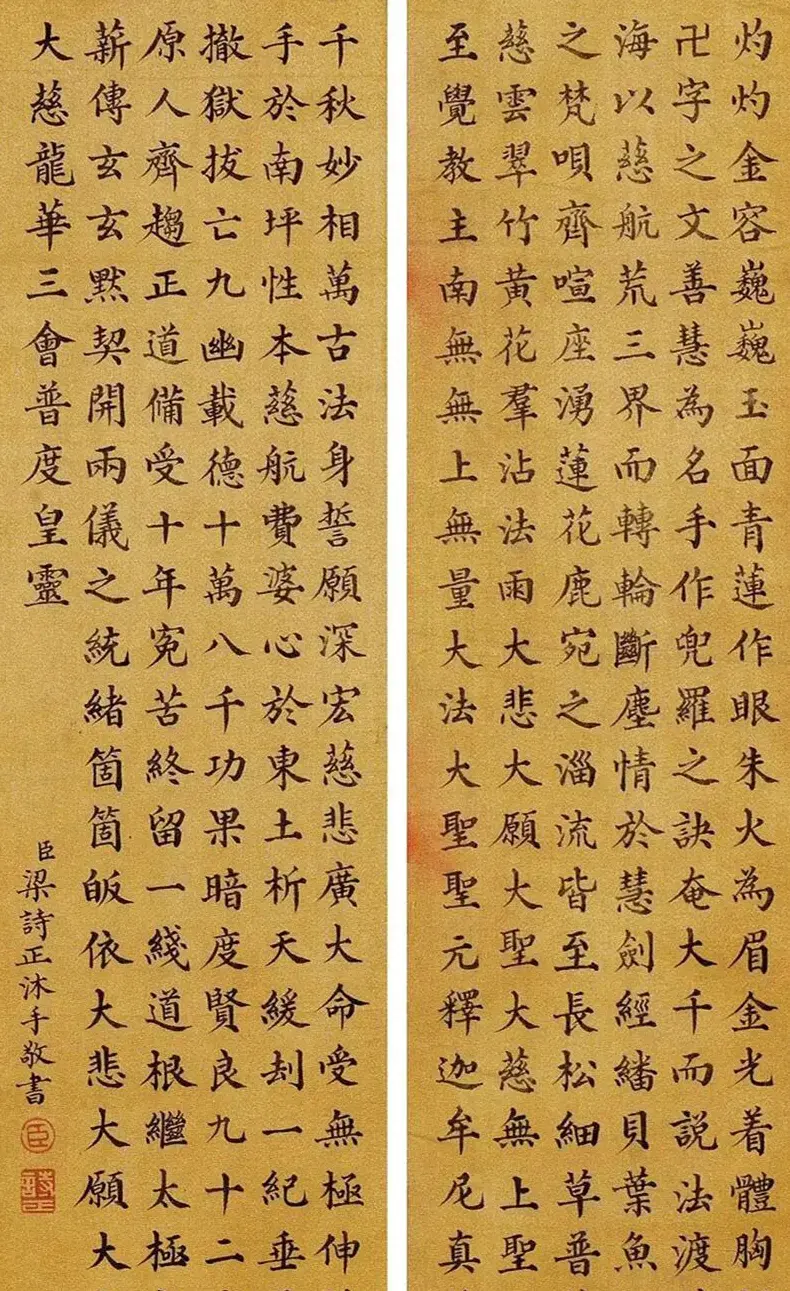 灼灼金容巍巍玉面青蓮作眼朱火為眉金光着體胸
卍字之文善慧為名手作兜羅之訣奄大千而説法渡
海以慈航荒三界而轉輪斷塵情於慧劍經繙貝葉魚
之梵唄齊喧座湧蓮花鹿宛之淄流皆至長松細草普
慈雲翠竹黃花羣沾法雨大悲大願大聖大慈無上聖
至覺教主南無無上無量大法大聖聖元釋迦牟尼真
千秋妙相萬古法身誓願深宏慈悲廣大命受無極伸
手於南坪性本慈航費婆心於東土析天緩刦一紀垂
撤獄拔亡九幽載德十萬八千功果暗度賢良九十二
原人齊趨正道備受十年寃苦終留一綫道根繼太極
薪傳玄玄默契開兩儀之統緒箇箇皈依大悲大願大
大慈龍華三會普度皇靈
臣梁詩正沐手敬書
臣